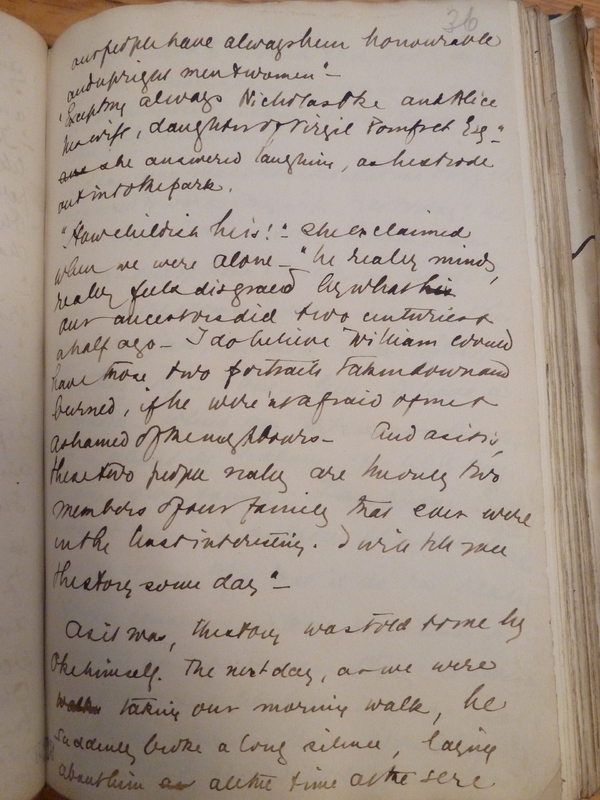 36
our people have always been honourable
and upright men & women" —
"Excepting always Nicholas Oke and Alice
his wife, daughter of Virgil Pomfret Esq"
and she answered laughing, as he strode
out into the park.
"How childish he is!" she exclaimed
when we were alone — "he really minds,
really feels disgraced by what his
our ancestors did two centuries &
a half ago — I do believe William would
have those two portraits taken down and
burned, if he weren't afraid of me &
ashamed of the neighbours — And as it is,
these two people really are the only two
members of our family that ever were
in the least interesting. I will tell you
the story some day" —
As it was, the story was told to me by
Oke himself. The next day, as we were
walkin taking our morning walk, he
suddenly broke a long silence, laying
about him as all the time at the sere